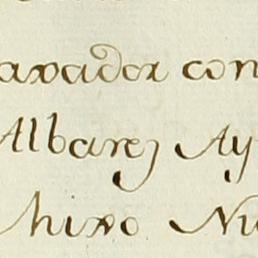 avador con
Albarez Ay
hixo Nu